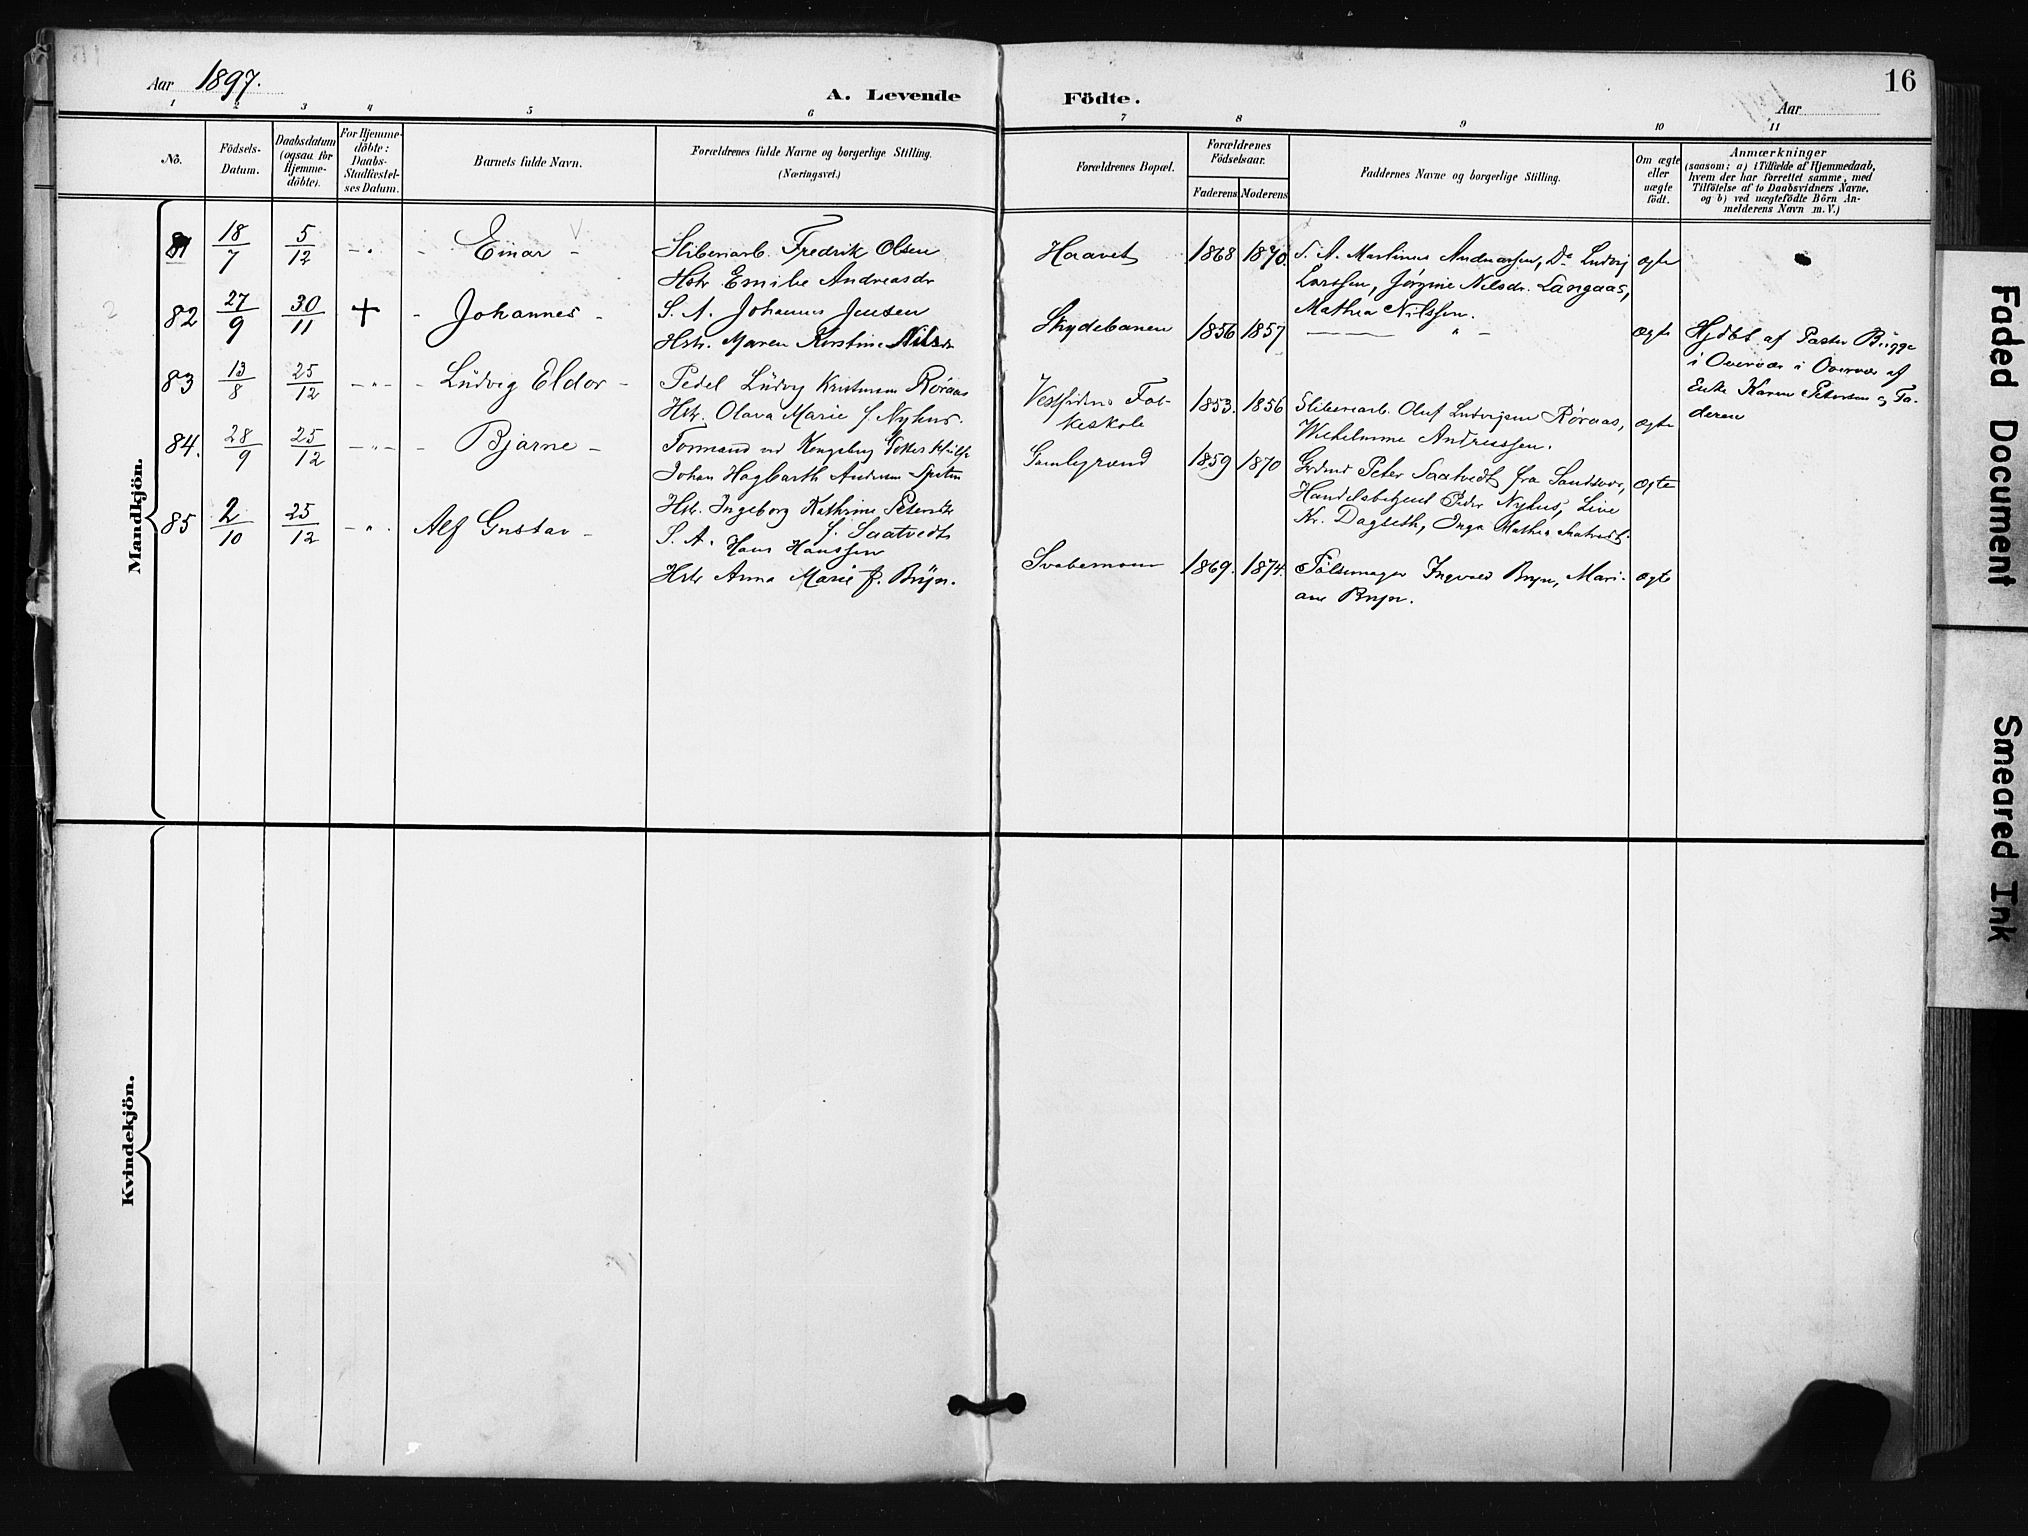 Aar 1897.
A. Levende Födte.
16
Aar
1 2 3 4 5 6 7 8 9 10 11
No.
Födsels-Datum.
Daabsdatum (ogsaa for Hjemmedöbte).
For Hjemmedöbte: Daabs-Stadfæstelses Datum.
Barnets fulde Navn.
Forældrenes fulde Navne og borgerlige Stilling.
(Næringsvei.)
Forældrenes Bopæl.
Forældrenes Födselsaar.
Faderens Moderens
Faddernes Navne og borgerlige Stilling.
Om ægte eller uægte födt.
Anmærkninger
(saasom: a) i Tilfælde af Hjemmedaab,
hvem der har forrettet samme, med
Tilföielse af to Daabsvidners Navne.
og b) ved uægtefödte Börn An-
melderens Navn m. V.)
Mandkjön.
81 18/7 5/12 Einar
Sliberiarb. Fredrik Olsen
Hstr Emilie Andreasdr
Haavet 1868 1870.
S. A. Martinus Andreassen, Do Ludvig
Larssen, Jørgine Nilsdr. Langaas,
Mathea Nilssen.
ægte
82 27/9 30/11 + Johannes
S. A. Johannes Jensen
Hstr. Maren Kirstine Nilsdr
Skydebanen 1856 1857
ægte
Hjdbt af Pastor Brigge
i Overvær af
Enke Karen Petersen og Fa-
deren
83 13/8 25/12 Ludvig Eldor
Pedel Ludvig Kristensen Røraas
Hstr. Olava Marie f. Nyhus.
Vestsidens Fol-
keskole
1853. 1856
Sliberiarb. Oluf Ludvigsen Røraas,
Wilhelmine Andreassen.
ægte
84. 28/9 25/12 Bjarne
Formand ved Kongsberg
Johan Hagbarth Andersen
Hstr. Ingeborg Kathrine Petersdr
f. Saatvedt
Gamlegrænd 1859 1870
Grdmd Peter Saatvedt fra Sandsvær,
Handelsbetjent Peder Nyhus, Live
Kr. Dagseth, Inga Mathea Saatvedt.
ægte
85 2/10 25/12 Alf Gustav
S. A. Hans Hanssen
Hstr Anna Marie f. Bryn.
Svabemoen 1869. 1874.
Pølsemager Ingvald Bryn, Mari-
ane Bryn.
ægte
Kvindekjön.
Faded Document
Smeared Ink